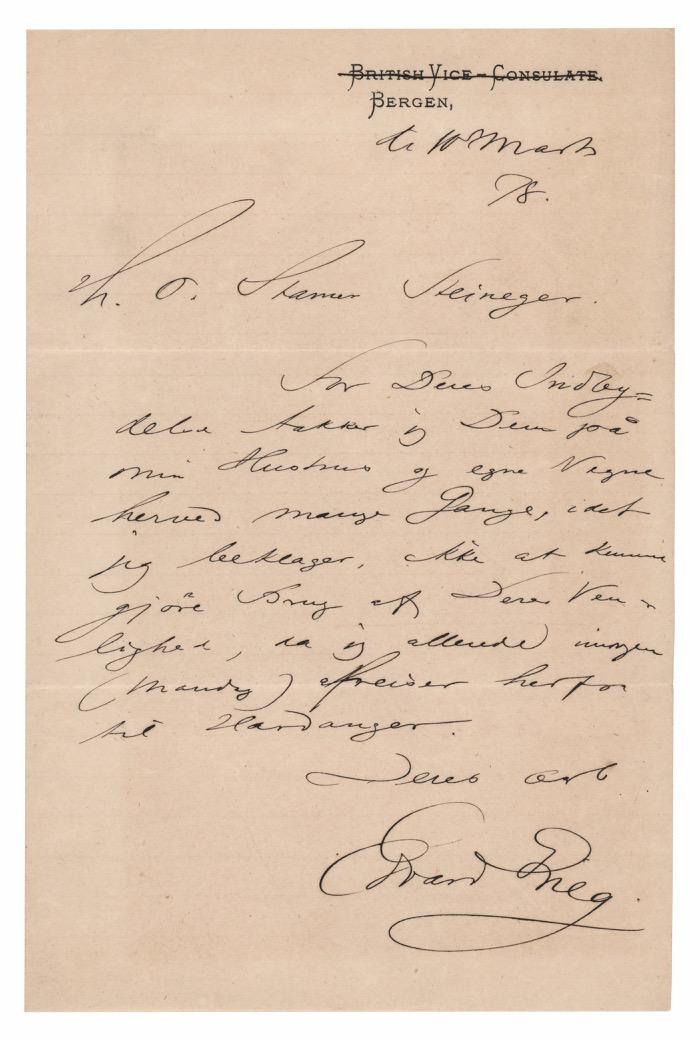 BRITISH VICE-CONSULATE.
BERGEN,
10 Marts
78.
O. Stamer Steineger.
For Deres Indby=
delse takker jeg Dem på
min Hustrus og egne Vegne
herved mange Gange, idet
jeg beklager, ikke at kunne
gjöre Brug af Deres Ven-
lighed, da jeg allerede imorgen
(Mandag) afreiser herfra
til Hardanger.
Deres erb
Edvard Grieg.